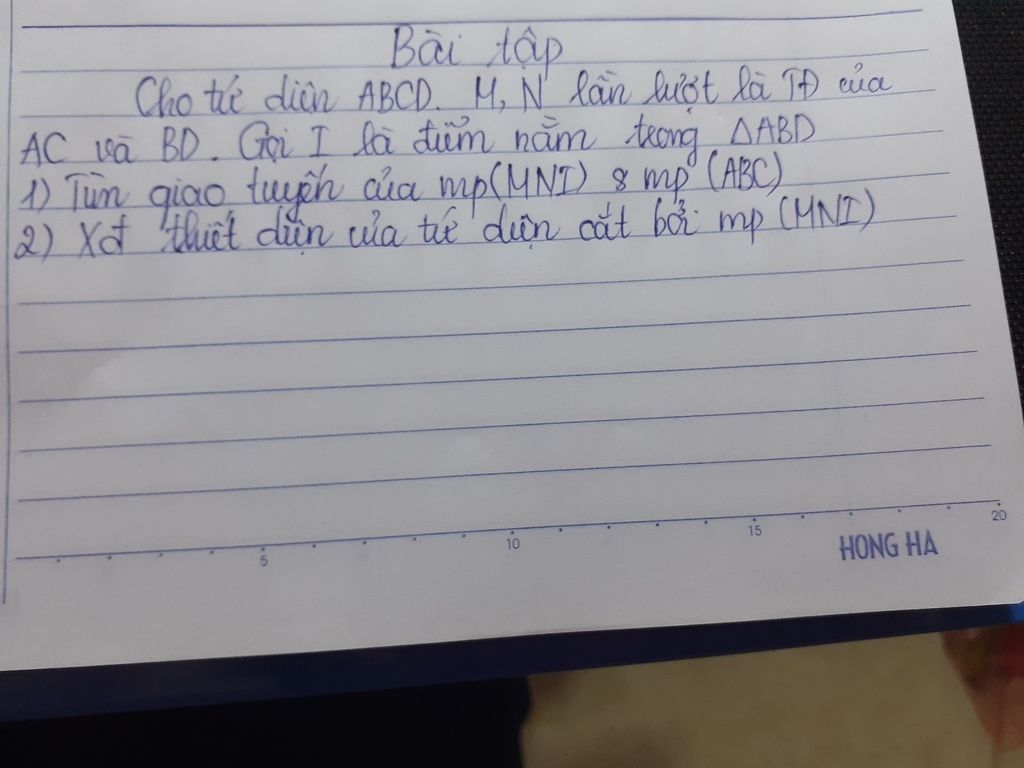 Bài tập
Cho tứ diện ABCD. M, N lần lượt là TĐ của
AC và BD. Gọi I là điểm nằm trong ΔABD
1) Tìm giao tuyến của mp(MNI) & mp (ABC)
2) Xđ thiết diện của tứ diện cắt bởi mp (MNI)
5 10 15 20
HONG HA